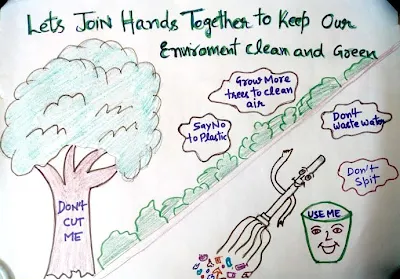 Lets Join Hands Together to Keep Our
Enviroment clean and Green
Grow More
trees to clean
air
Say No
to Plastic
Don't
waste water
Don't
Spit
DON'T
CUT
ME
USE ME